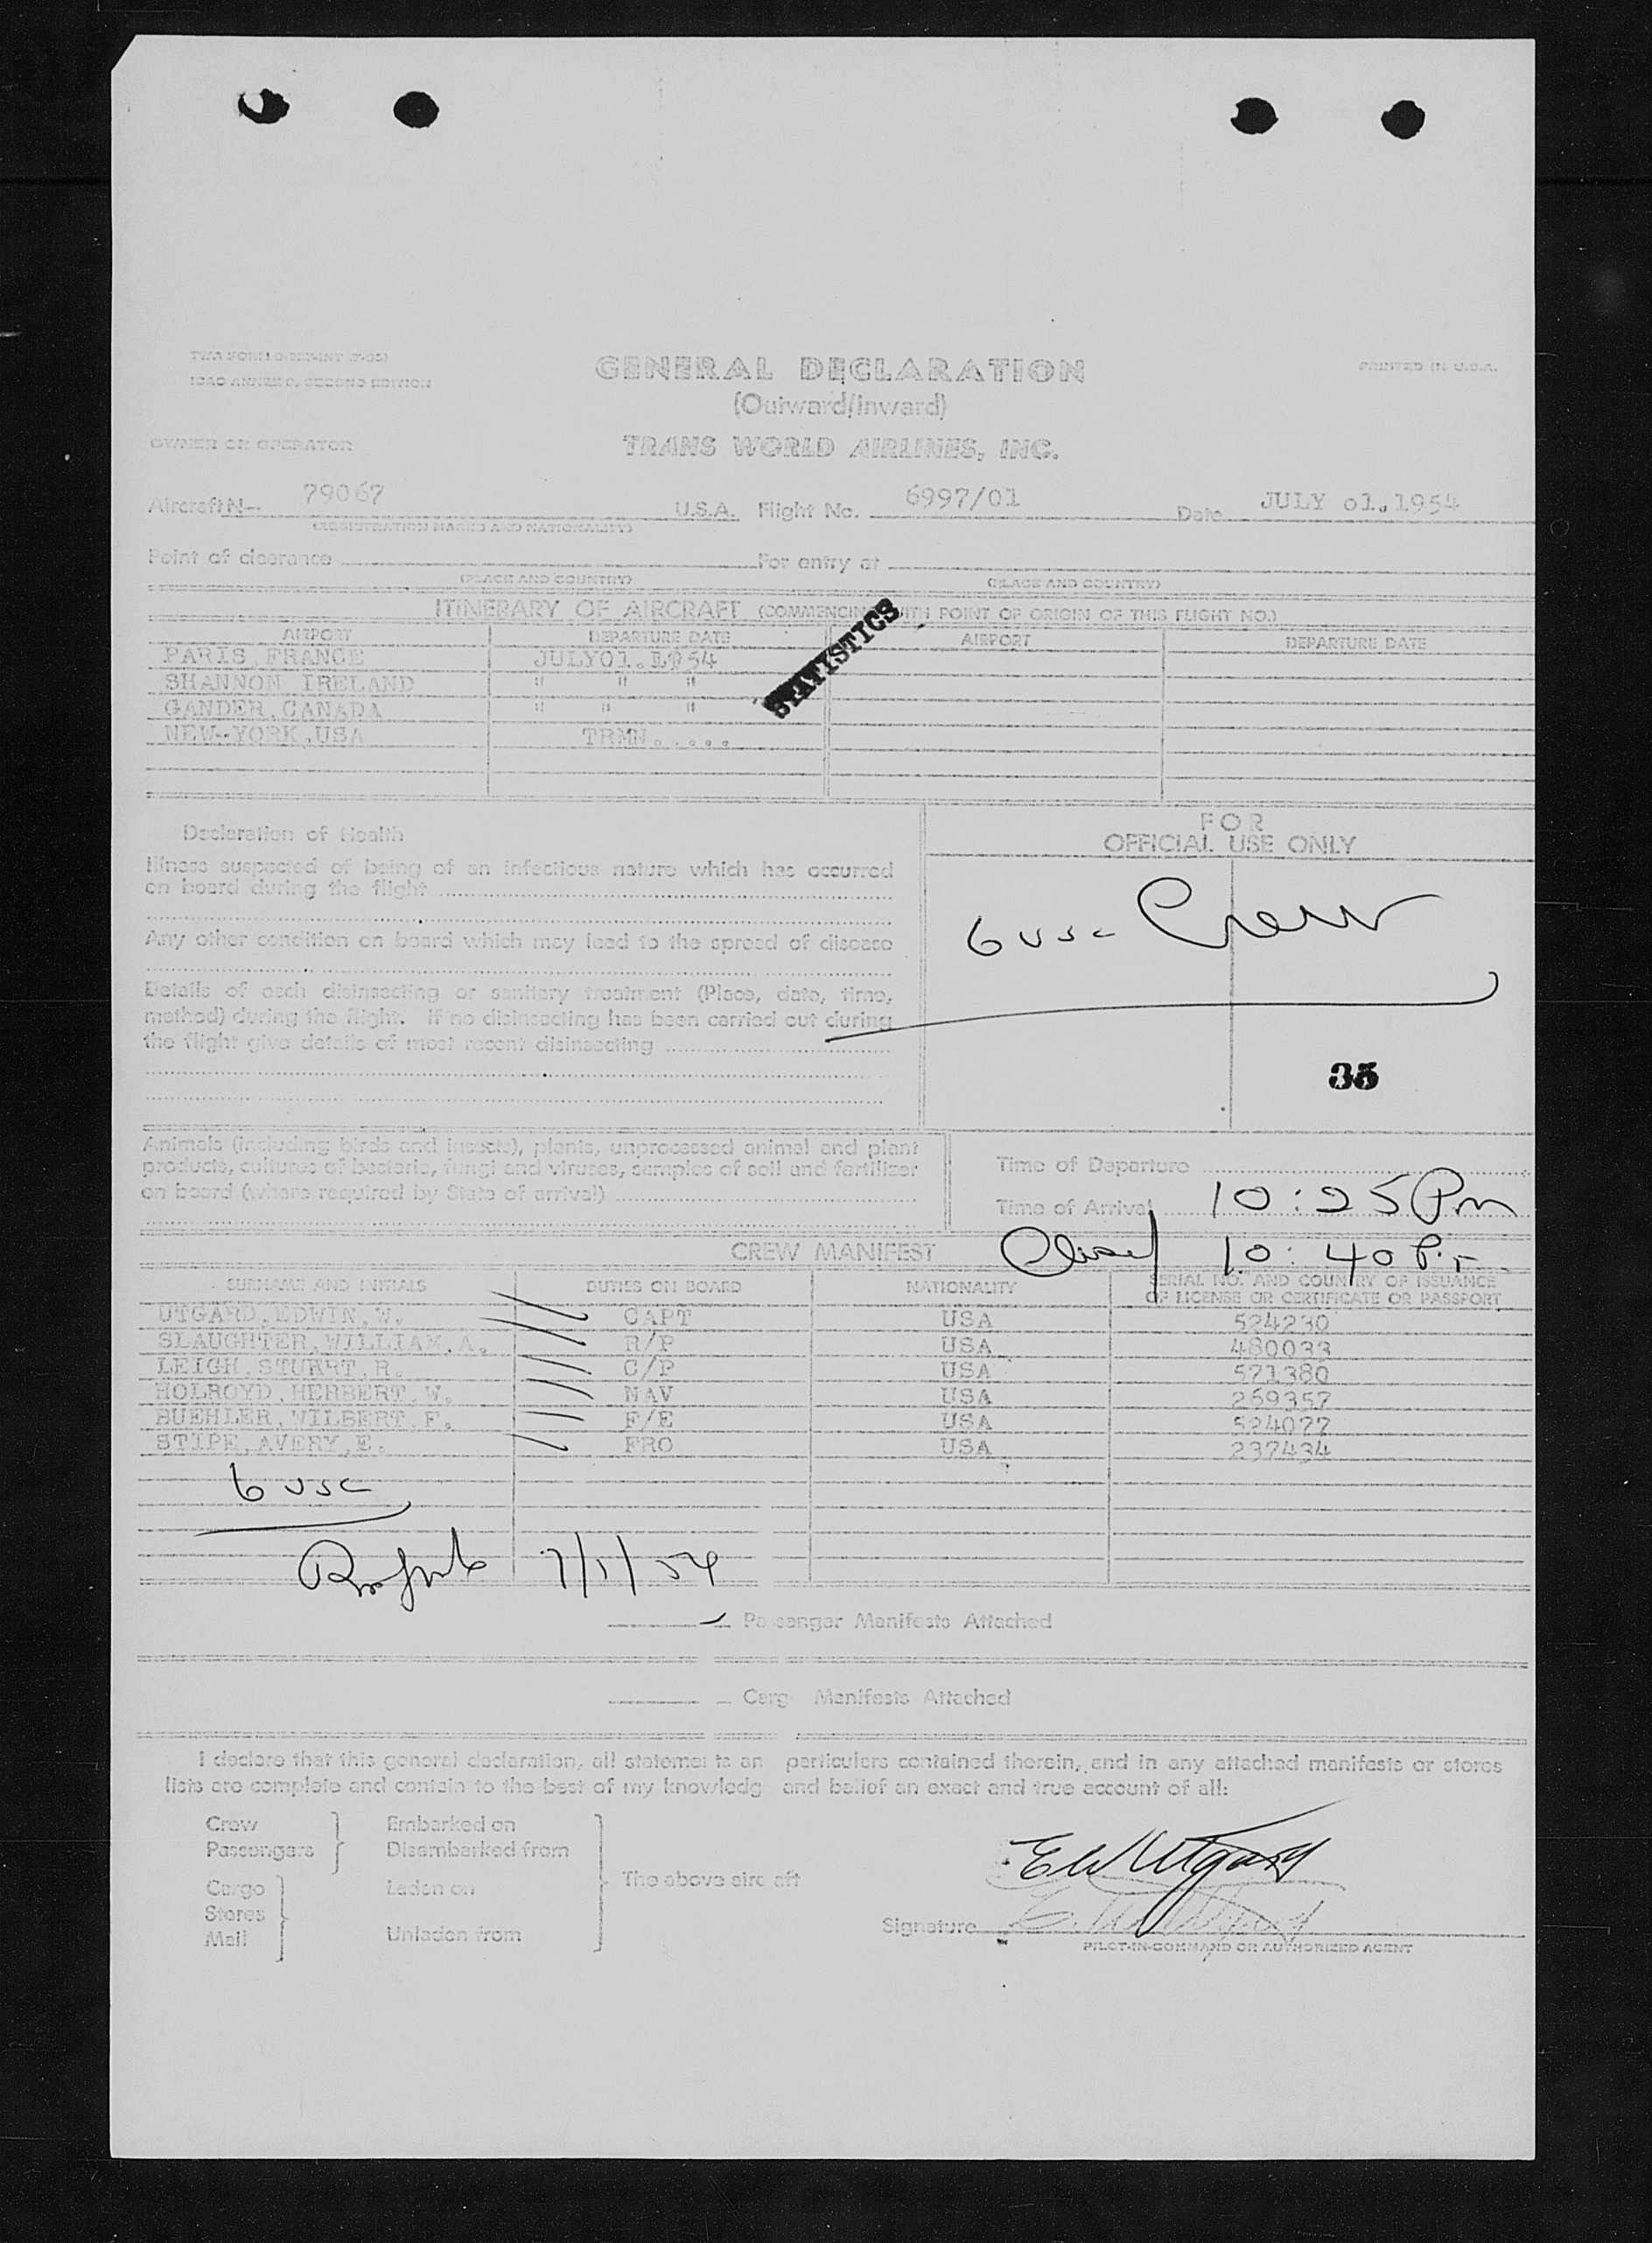 ICAO ANNEX 9, SECOND EDITION
PRINTED IN U.S.A.
GENERAL DECLARATION
(Outward/Inward)
OWNER OR OPERATOR
TRANS WORLD AIRLINES, INC.
Aircraft N- 79067 U.S.A. Flight No. 6997/01 Date JULY 01.1954
(REGISTRATION MARKS AND NATIONALITY)
Point of clearance For entry at
(PLACE AND COUNTRY) (PLACE AND COUNTRY)
ITINERARY OF AIRCRAFT (COMMENCING WITH POINT OF ORIGIN OF THIS FLIGHT NO.)
STATISTICS
AIRPORT DEPARTURE DATE AIRPORT DEPARTURE DATE
PARIS, FRANCE JULY01.1954
SHANNON, IRELAND " " "
GANDER, CANADA " " "
NEW-YORK, USA TRMN.....
Declaration of Health
Illness suspected of being of an infectious nature which has occurred
on board during the flight
Any other condition on board which may lead to the spread of disease
Details of each disinsecting or sanitary treatment (Place, date, time,
method) during the flight. If no disinsecting has been carried out during
the flight give details of most recent disinsecting
FOR
OFFICIAL USE ONLY
6 usc Crew
35
Animals (including birds and insects), plants, unprocessed animal and plant
products, cultures of bacteria, fungi and viruses, samples of soil and fertilizer
on board (where required by State of arrival)
Time of Departure
Time of Arrival 10:25 Pm
10:40 P.m
CREW MANIFEST
SURNAME AND INITIALS DUTIES ON BOARD NATIONALITY SERIAL NO. AND COUNTRY OF ISSUANCE
OF LICENSE OR CERTIFICATE OR PASSPORT
UTGARD, EDWIN, W. CAPT USA 524230
SLAUGHTER, WILLIAM, A. R/P USA 480033
LEIGH, STUART, R. C/P USA 571380
HOLROYD, HERBERT, W. NAV USA 269357
BUEHLER, WILBERT, F. F/E USA 524077
STIPE, AVERY, E. FRO USA 237434
6 usc
7/1/54
Passenger Manifests Attached
Carg Manifests Attached
I declare that this general declaration, all statemen ts an particulars contained therein, and in any attached manifests or stores
lists are complete and contain to the best of my knowledg and belief an exact and true account of all:
Crew Embarked on
Passengers Disembarked from
The above airc aft
Cargo Laden on
Stores
Mail Unladen from
E W Utgard
Signature
PILOT-IN-COMMAND OR AUTHORIZED AGENT